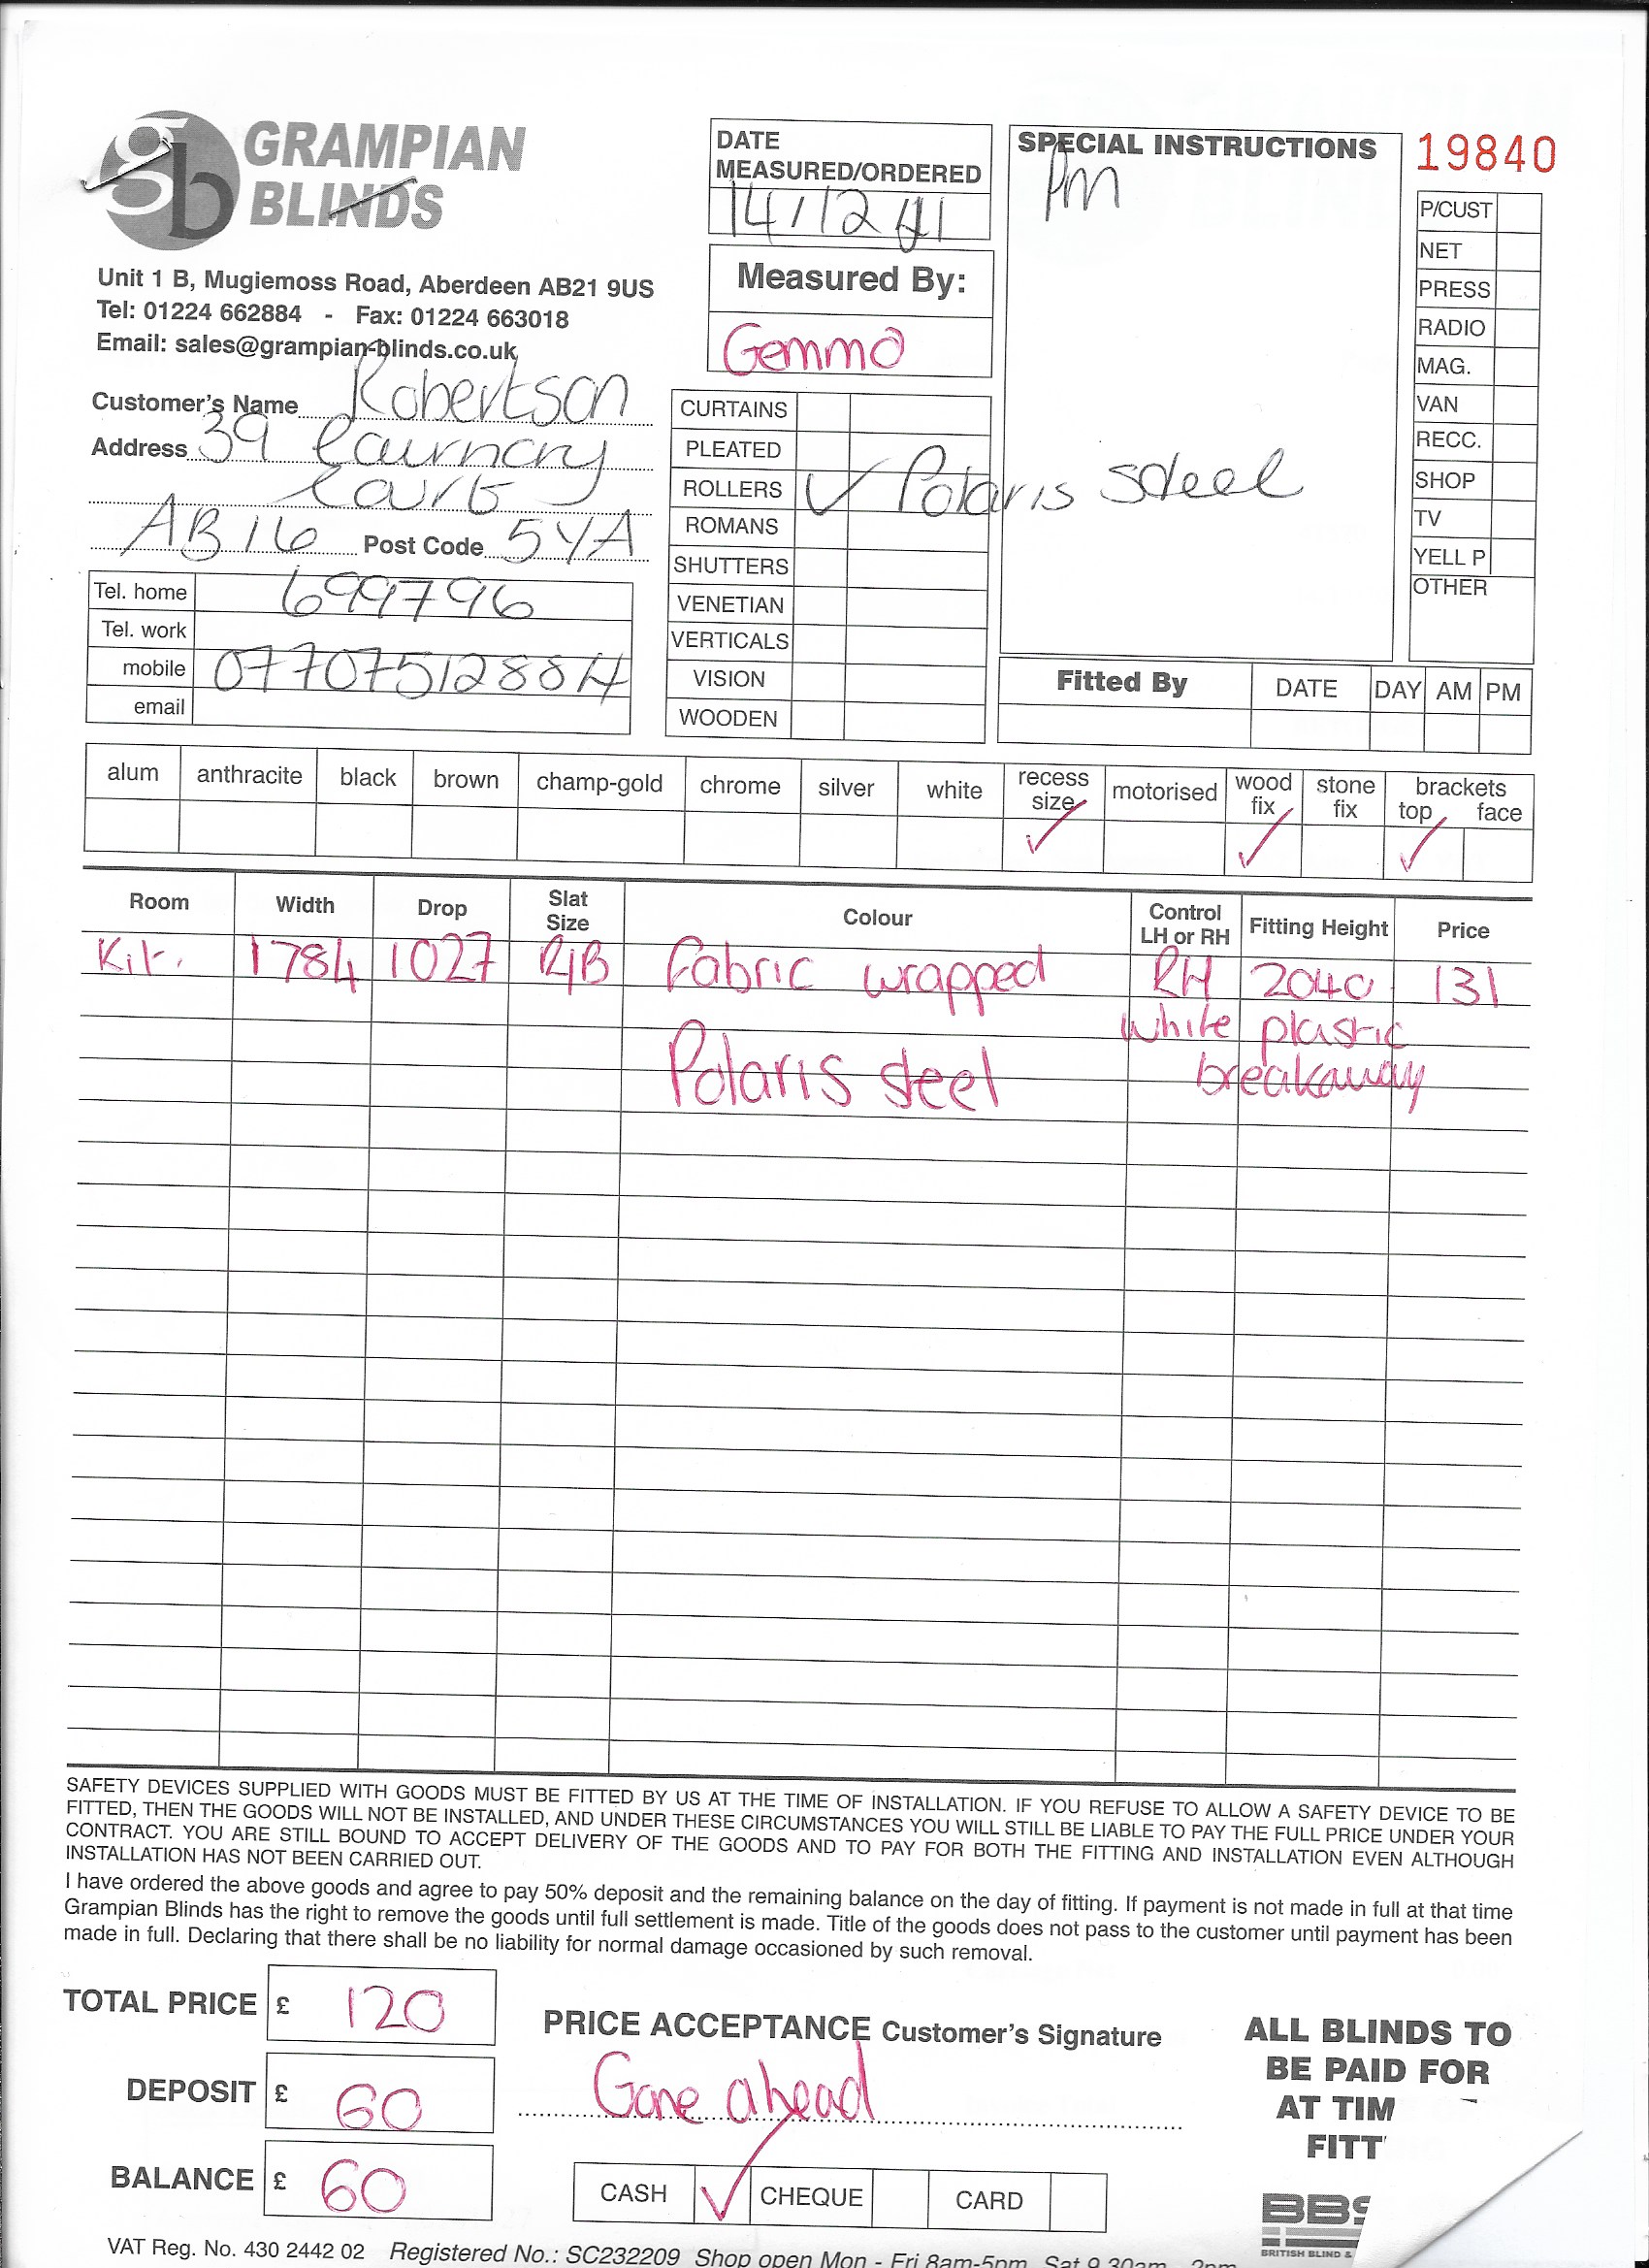 GRAMPIAN
BLINDS
Unit 1 B, Mugiemoss Road, Aberdeen AB21 9US
Tel: 01224 662884 - Fax: 01224 663018
Email: sales@grampian-blinds.co.uk
Customer's Name Robertson
Address 39
Court
AB16 Post Code 5YA
Tel. home 699796
Tel. work
mobile 07707512884
email
DATE
MEASURED/ORDERED
14/12
Measured By:
Gemma
CURTAINS
PLEATED
ROLLERS ✓ Polaris steel
ROMANS
SHUTTERS
VENETIAN
VERTICALS
VISION
WOODEN
SPECIAL INSTRUCTIONS
PM
19840
P/CUST
NET
PRESS
RADIO
MAG.
VAN
RECC.
SHOP
TV
YELL P
OTHER
Fitted By DATE DAY AM PM
alum anthracite black brown champ-gold chrome silver white recess size motorised wood fix stone fix brackets top face
✓ ✓ ✓
Room Width Drop Slat Size Colour Control LH or RH Fitting Height Price
Kit. 1784 1027 R/B Fabric wrapped RH 2040 131
white plastic
Polaris steel breakaway
SAFETY DEVICES SUPPLIED WITH GOODS MUST BE FITTED BY US AT THE TIME OF INSTALLATION. IF YOU REFUSE TO ALLOW A SAFETY DEVICE TO BE
FITTED, THEN THE GOODS WILL NOT BE INSTALLED, AND UNDER THESE CIRCUMSTANCES YOU WILL STILL BE LIABLE TO PAY THE FULL PRICE UNDER YOUR
CONTRACT. YOU ARE STILL BOUND TO ACCEPT DELIVERY OF THE GOODS AND TO PAY FOR BOTH THE FITTING AND INSTALLATION EVEN ALTHOUGH
INSTALLATION HAS NOT BEEN CARRIED OUT.
I have ordered the above goods and agree to pay 50% deposit and the remaining balance on the day of fitting. If payment is not made in full at that time
Grampian Blinds has the right to remove the goods until full settlement is made. Title of the goods does not pass to the customer until payment has been
made in full. Declaring that there shall be no liability for normal damage occasioned by such removal.
TOTAL PRICE £ 120
DEPOSIT £ 60
BALANCE £ 60
PRICE ACCEPTANCE Customer's Signature
Gone ahead
CASH ✓ CHEQUE CARD
ALL BLINDS TO
BE PAID FOR
AT TIM
FITT
BBS
BRITISH BLIND &
VAT Reg. No. 430 2442 02 Registered No.: SC232209 Shop open Mon - Fri 8am-5pm Sat 9.30am - 2pm